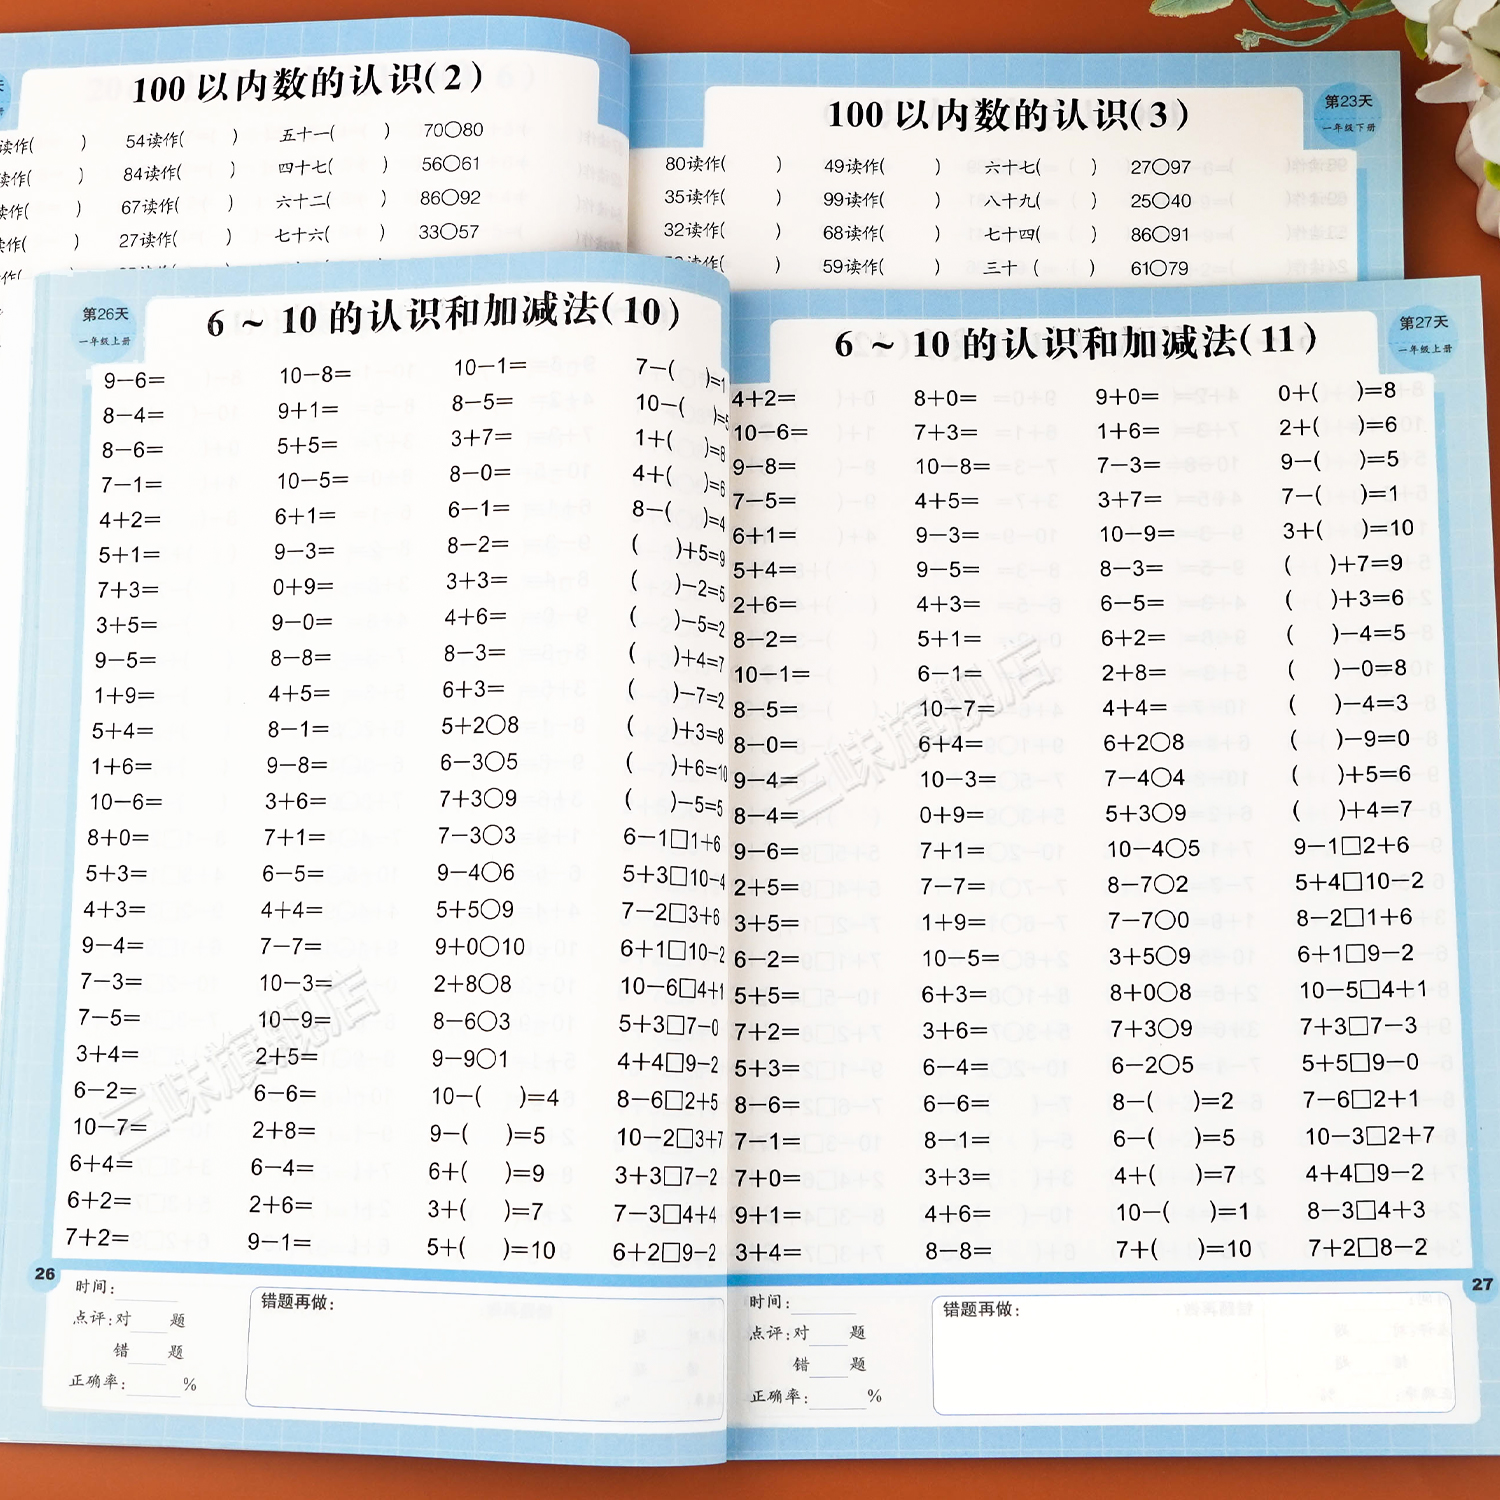 100以内数的认识(2)
读作(  )  54读作(  )  五十一(  )  70○80
读作(  )  84读作(  )  四十七(  )  56○61
读作(  )  67读作(  )  六十二(  )  86○92
读作(  )  27读作(  )  七十六(  )  33○57
第23天
一年级下册
100以内数的认识(3)
80读作(  )  49读作(  )  六十七(  )  27○97
35读作(  )  99读作(  )  八十九(  )  25○40
32读作(  )  68读作(  )  七十四(  )  86○91
59读作(  )  三十(  )  61○79
第26天
一年级上册
6~10的认识和加减法(10)
9-6=  10-8=  10-1=  7-(  )=1
8-4=  9+1=  8-5=  10-(  )=5
8-6=  5+5=  3+7=  1+(  )=8
7-1=  10-5=  8-0=  4+(  )=6
4+2=  6+1=  6-1=  8-(  )=4
5+1=  9-3=  8-2=  (  )+5=9
7+3=  0+9=  3+3=  (  )-2=5
3+5=  9-0=  4+6=  (  )-5=2
9-5=  8-8=  8-3=  (  )+4=7
1+9=  4+5=  6+3=  (  )-7=2
5+4=  8-1=  5+2○8  (  )+3=8
1+6=  9-8=  6-3○5  (  )+6=10
10-6=  3+6=  7+3○9  (  )-5=5
8+0=  7+1=  7-3○3  6-1□1+6
5+3=  6-5=  9-4○6  5+3□10-4
4+3=  4+4=  5+5○9  7-2□3+6
9-4=  7-7=  9+0○10  6+1□10-2
7-3=  10-3=  2+8○8  10-6□4+1
7-5=  10-9=  8-6○3  5+3□7-0
3+4=  2+5=  9-9○1  4+4□9-2
6-2=  6-6=  10-(  )=4  8-6□2+5
10-7=  2+8=  9-(  )=5  10-2□3+7
6+4=  6-4=  6+(  )=9  3+3□7-2
6+2=  2+6=  3+(  )=7  7-3□4+4
7+2=  9-1=  5+(  )=10  6+2□9-2
26
时间:
点评:对  题
错  题
正确率:  %
错题再做:
第27天
一年级上册
6~10的认识和加减法(11)
4+2=  8+0=  9+0=  0+(  )=8
10-6=  7+3=  1+6=  2+(  )=6
9-8=  10-8=  7-3=  9-(  )=5
7-5=  4+5=  3+7=  7-(  )=1
6+1=  9-3=  10-9=  3+(  )=10
5+4=  9-5=  8-3=  (  )+7=9
2+6=  4+3=  6-5=  (  )+3=6
8-2=  5+1=  6+2=  (  )-4=5
10-1=  6-1=  2+8=  (  )-0=8
8-5=  10-7=  4+4=  (  )-4=3
8-0=  6+4=  6+2○8  (  )-9=0
9-4=  10-3=  7-4○4  (  )+5=6
8-4=  0+9=  5+3○9  (  )+4=7
9-6=  7+1=  10-4○5  9-1□2+6
2+5=  7-7=  8-7○2  5+4□10-2
3+5=  1+9=  7-7○0  8-2□1+6
6-2=  10-5=  3+5○9  6+1□9-2
5+5=  6+3=  8+0○8  10-5□4+1
7+2=  3+6=  7+3○9  7+3□7-3
5+3=  6-4=  6-2○5  5+5□9-0
8-6=  6-6=  8-(  )=2  7-6□2+1
7-1=  8-1=  6-(  )=5  10-3□2+7
7+0=  3+3=  4+(  )=7  4+4□9-2
9+1=  4+6=  10-(  )=1  8-3□4+3
3+4=  8-8=  7+(  )=10  7+2□8-2
27
时间:
点评:对  题
错  题
正确率:  %
错题再做:
三味旗舰店
三味旗舰店